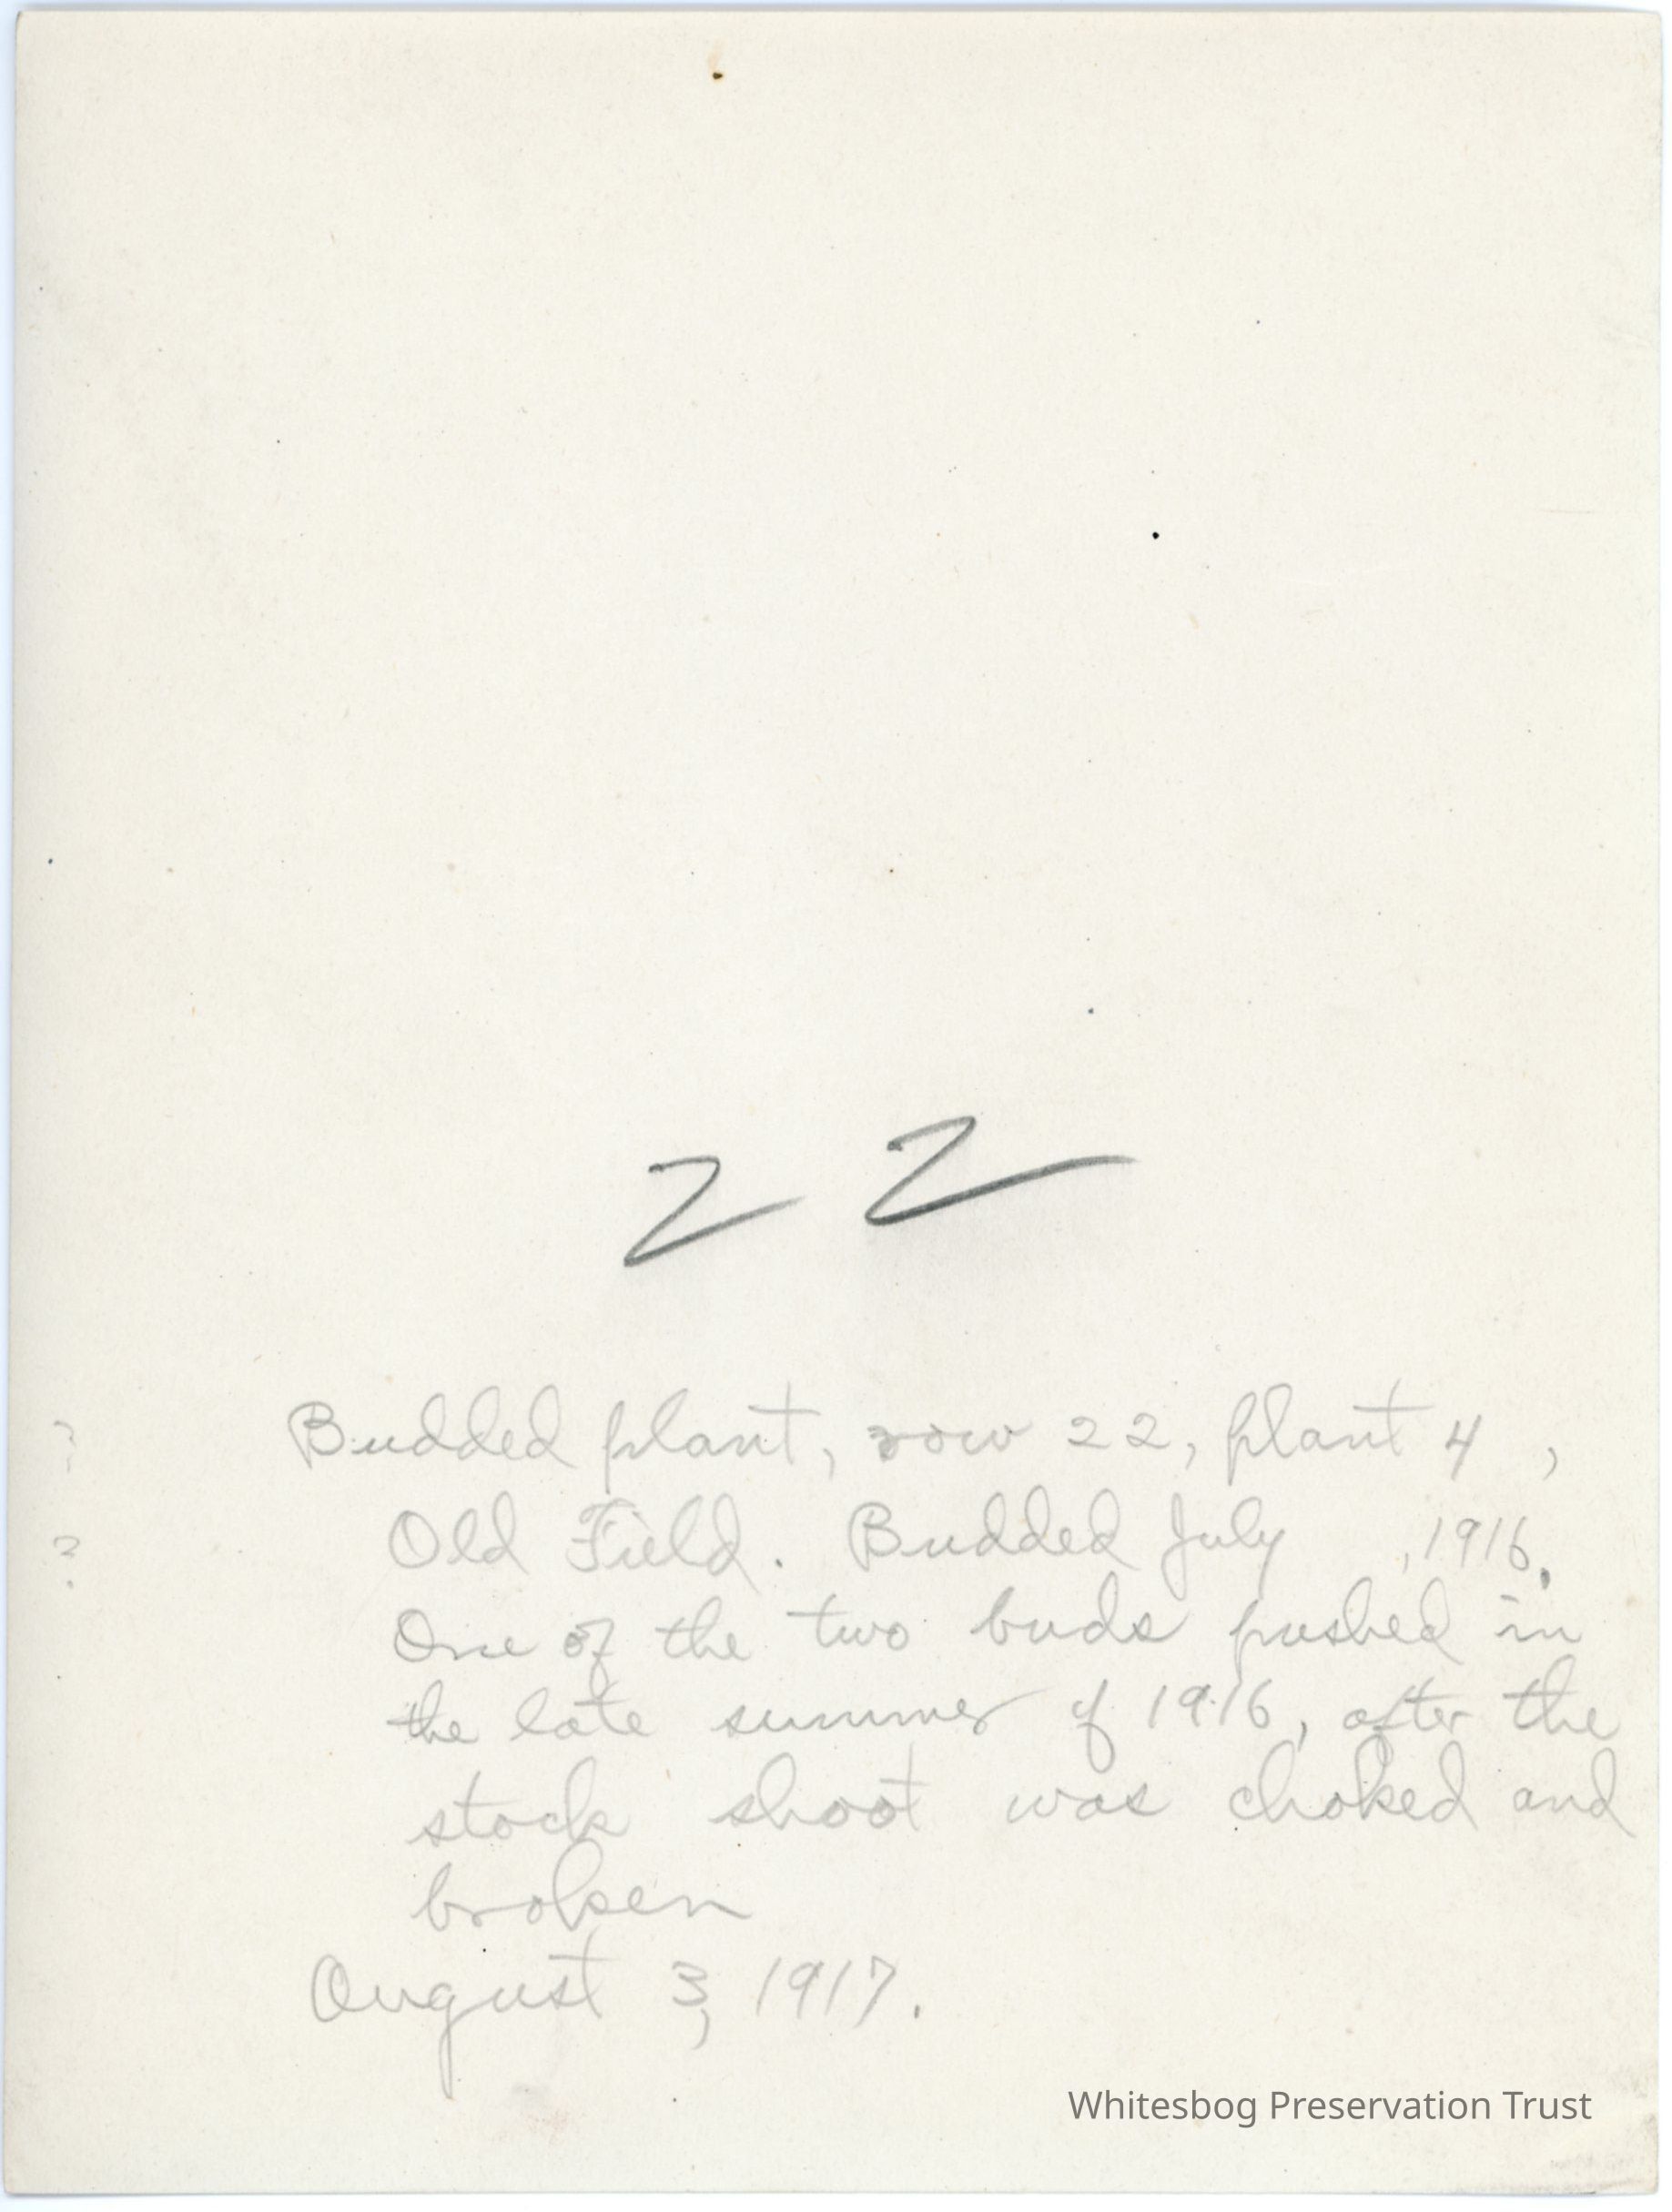 22
? Budded plant, row 22, plant 4 ,
? Old Field. Budded July , 1916.
One of the two buds pushed in
the late summer of 1916, after the
stock shoot was choked and
broken
August 3, 1917.
Whitesbog Preservation Trust